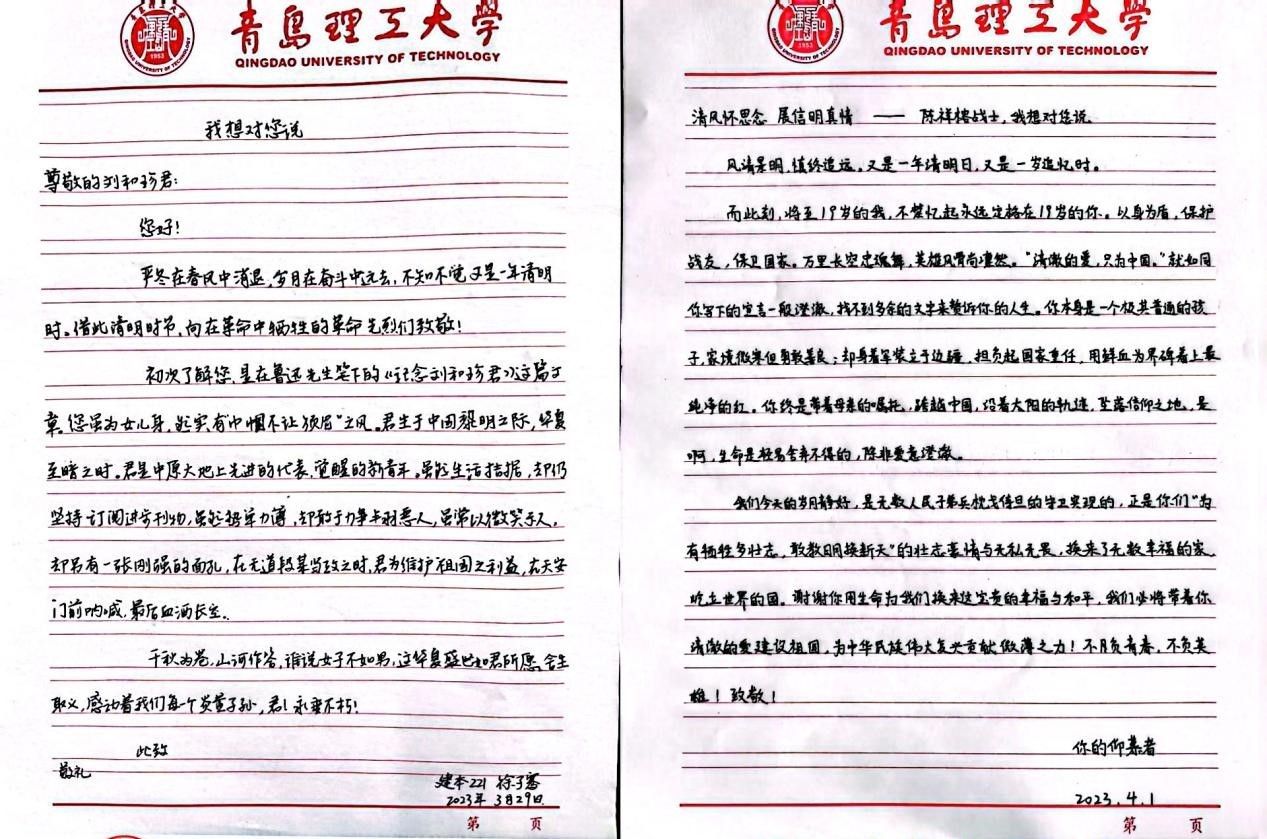 青岛理工大学
QINGDAO UNIVERSITY OF TECHNOLOGY
我想对您说
尊敬的刘和珍君:
您好!
严冬在春风中消退,岁月在奋斗中远去,不知不觉又是一年清明
时。借此清明时节,向在革命中牺牲的革命先烈们致敬!
初次了解您,是在鲁迅先生笔下的《记念刘和珍君》这篇文
章。您虽为女儿身,然实有“巾帼不让须眉”之风。君生于中国黎明之际,华夏
至暗之时。君是中原大地上先进的代表,觉醒的新青年。虽然生活拮据,却仍
坚持订阅进步刊物,虽然轻单力薄,却敢于力争与羽恶人,虽常以微笑示人,
却另有一张刚强的面孔,在无道段某当政之时,君为维护祖国之利益,在天安
门前呐喊,最后血洒长空。
千秋为卷,山河作答,谁说女子不如男,这华夏盛世如君所愿,舍生
取义,感动着我们每个炎黄子孙,君!永垂不朽!
此致
敬礼
建本221 徐子
2023年 3月29日
第 页
青岛理工大学
QINGDAO UNIVERSITY OF TECHNOLOGY
1953
清风怀思念 展信明真情 —— 陈祥榕战士,我想对您说
风清景明,慎终追远。又是一年清明日,又是一岁追忆时。
而此刻,将至19岁的我,不禁忆起永远定格在19岁的你。以身为盾,保护
战友,保卫国家。万里长空忠魂舞,英雄风骨尚凛然。“清澈的爱,只为中国。”就如同
你写下的宣言一般澄澈,找不到多余的文字来赘诉你的人生。你本身是一个极其普通的孩
子,家境微寒但勇敢善良;却身着军装立于边疆,担负起国家重任,用鲜血为界碑着上最
纯净的红。你终是带着母亲的嘱托,跨越中国,沿着太阳的轨迹,坠落信仰之地。是
啊,生命是轻易舍弃不得的,除非爱意澄澈。
我们今天的岁月静好,是无数人民子弟兵枕戈待旦的守卫实现的,正是你们“为
有牺牲多壮志,敢教日月换新天”的壮志豪情与无私无畏,换来了无数幸福的家,
屹立世界的国。谢谢你用生命为我们换来这宝贵的幸福与和平,我们必将带着你
清澈的爱建设祖国,为中华民族伟大复兴贡献微薄之力!不负青春,不负英
雄!致敬!
你的仰慕者
2023.4.1
第 页